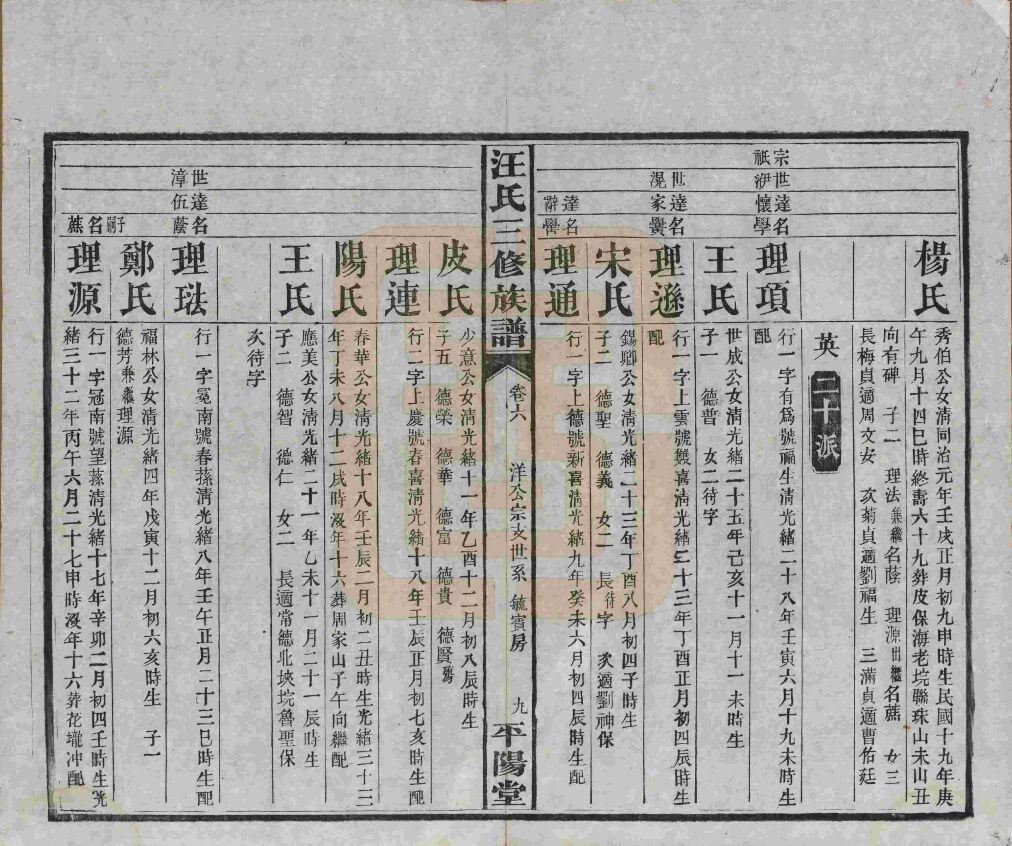 楊氏
秀伯公女清同治元年壬戌正月初九申時生民國十九年庚
午九月十四巳時終壽六十九葬皮保海老垸聯珠山未山丑
向有碑 子二 理法兼繼名蔭 理源出繼名蕉 女三
長梅貞適周文安 次菊貞適劉福生 三滿貞適曹佑廷
英 二十派
宗祇
世伊
達懷
名學
理項
行一字有爲號福生清光緒二十八年壬寅六月十九未時生
配
王氏
世成公女清光緒二十五年己亥十一月十一未時生
子一 德普 女二待字
世滉
達家
名黌
理遜
行一字上雲號雙喜清光緒二十三年丁酉正月初四辰時生
配
宋氏
錫卿公女清光緒二十三年丁酉八月初四子時生
子二 德聖 德義 女二 長待字 次適劉神保
達辭
名嚳
理通
行一字上德號新喜清光緒九年癸未六月初四辰時生配
汪氏三修族譜
卷六 洋公宗支世系 毓賓房 九
平陽堂
皮氏
少意公女清光緒十一年乙酉十二月初八辰時生
子五 德榮 德華 德富 德貴 德賢殤
理連
行二字上慶號春喜清光緒十八年壬辰正月初七亥時生配
陽氏
春華公女清光緒十八年壬辰二月初二丑時生光緒三十三
年丁未八月十二戌時沒年十六葬周家山子午向繼配
王氏
應美公女清光緒二十一年乙未十一月二十一辰時生
子二 德智 德仁 女二 長適常德北垸魯聖保
次待字
世漳
達伍
名蔭
理珐
行一字冕南號春蓀清光緒八年壬午正月二十三巳時生配
鄭氏
福林公女清光緒四年戊寅十二月初六亥時生 子一
德芳兼繼理源
子嗣
名蕉
理源
行一字冠南號望蓀清光緒十七年辛卯二月初四壬時生光
緒三十二年丙午六月二十七申時沒年十六葬花壠冲配